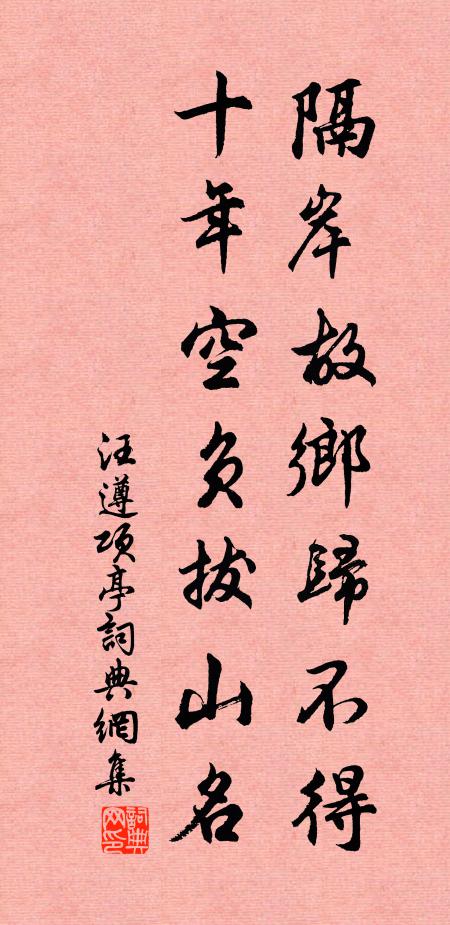 隔岸故鄉歸不得
十年空負拔山名
汪遵項亭詞典網集
詞典网印